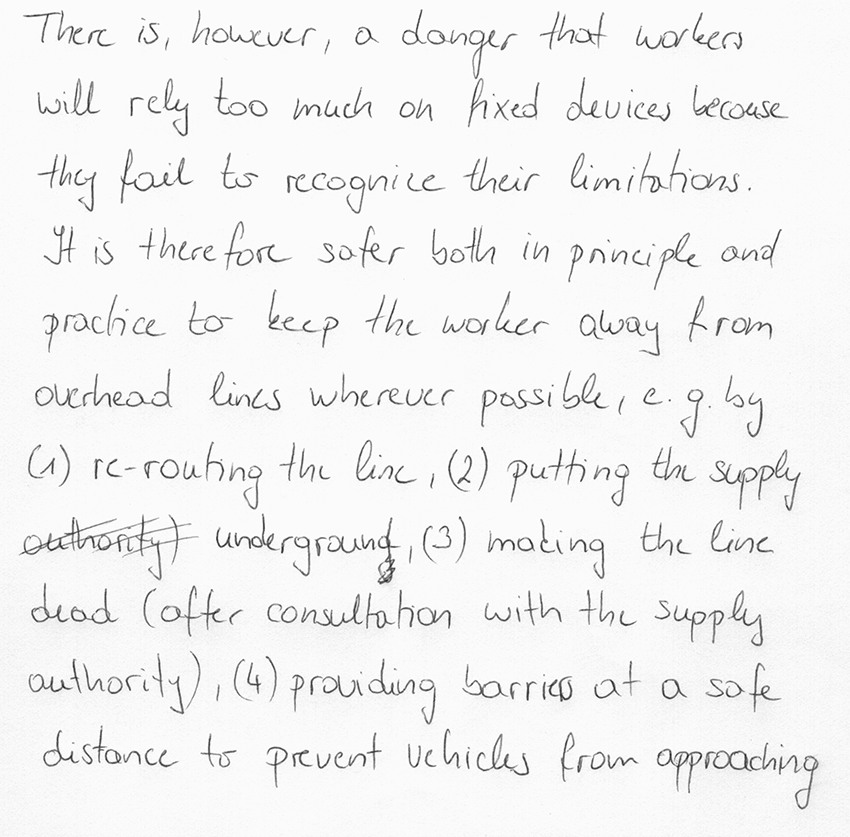 There is, however, a danger that workers
will rely too much on fixed devices because
they fail to recognize their limitations.
It is therefore safer both in principle and
practice to keep the worker away from
overhead lines wherever possible, e.g. by
(1) re-routing the line, (2) putting the supply
authority) underground, (3) making the line
dead (after consultation with the supply
authority), (4) providing barries at a safe
distance to prevent vehicles from approaching